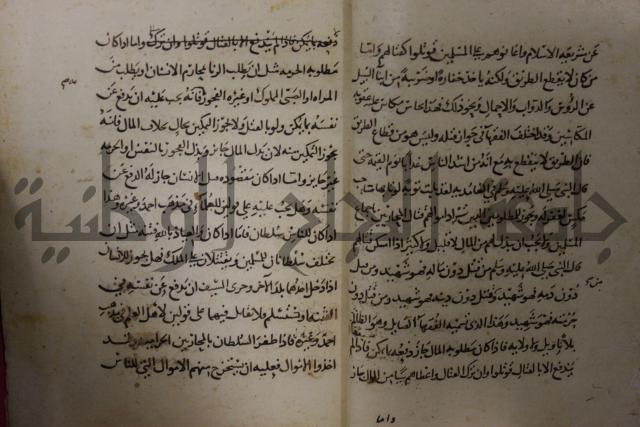 عن شريعة الاسلام واعانوهم على المسلمين قوتلوا كقتالهم واما
من كان لا يقطع الطريق ولكنه ياخذ خفارة او ضريبة من ابناء السبيل
على الروس والدواب والاحمال ونحو ذلك فهذا مكاس عليه عقوبة
المكاسين وقد اختلف الفقها في جواز قتله وليس هو من قطاع الطريق
فان الطريق لا ينقطع به مع انه من اشد الناس عذابا يوم القيمة حتى
قال النبي صلى الله عليه وسلم في الغامدية لقد تابت توبة لو تابها صاحب
مكس لغفر له ويجوز للمظلومين الذين تراد اموالهم قتال المحاربين باجماع
المسلمين ولا يجب ان يبذل لهم من المال لا قليل ولا كثير اذا امكن قتالهم
قال النبي صلى الله عليه وسلم من قتل دون ماله فهو شهيد ومن قتل
دون دمه فهو شهيد ومن قتل دون دينه فهو شهيد ومن قتل دون
حرمته فهو شهيد وهذا الذي تسميه الفقهاء الصايل وهو الظالم
بلا تاويل ولا ولاية فاذا كان مطلوبه المال جاز دفعه بما يمكن فاذا لم
يندفع الا بالقتال قوتلوا وان ترك القتال واعطاهم شيا من المال جاز
واما
دفعه بما يمكن فاذا لم يندفع الا بالقتال قوتلوا وان ترك واما اذا كان
مطلوبه الحرمة مثل ان يطلب الزنا بمحارم الانسان او يطلب من
المراة او الصبي المملوك او غيره الفجور فانه يجب عليه ان يدفع عن
نفسه بما يمكن ولو بالقتل ولا يجوز التمكين بحال بخلاف المال فانه
يجوز التمكين منه لان بذل المال جايز وبذل الفجور بالنفس او الحرمة
غير جايز واما اذا كان مقصوده قتل الانسان جاز له الدفع عن
نفسه وهل يجب عليه على قولين للعلماء في مذهب احمد وغيره هذا
اذا كان للناس سلطان فاما اذا كان والعياذ بالله فتنة مثل ان
يختلف سلطانان للمسلمين ويقتتلان على الملك فهل يجوز للانسان
اذا دخل احدهما بلد الآخر وجرى السيف ان يدفع عن نفسه في
الفتنه او يستسلم فلا يقاتل فيها على قولين لاهل العلم في مذهب
احمد وغيره فاذا ظفر السلطان بالمحاربين الحرامية وقد
اخذوا الاموال فعليه ان يستخرج منهم الاموال التي للناس
جامعة النجاح الوطنية